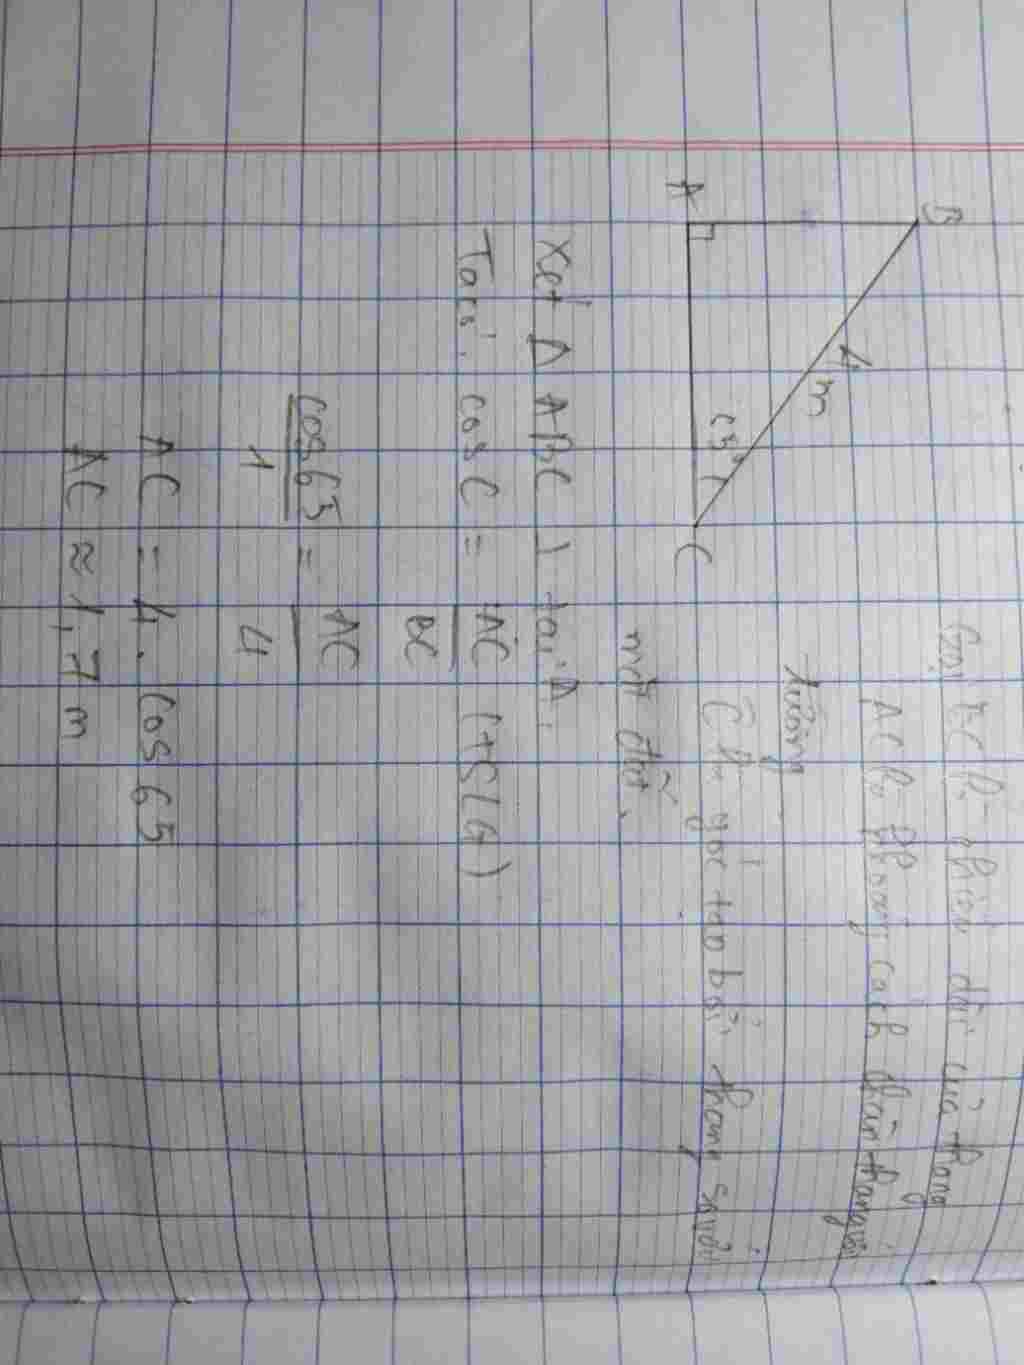 B
4 m
65°
A
C
Gọi BC là chiều dài của thang
AC là khoảng cách chân thang với
tường
C là góc tạo bởi thang so với
mặt đất.
Xét Δ ABC ⊥ tại A,
Ta có: cos C = AC/BC (tSLG)
cos 65/1 = AC/4
AC = 4. cos 65
AC ≈ 1,7 m